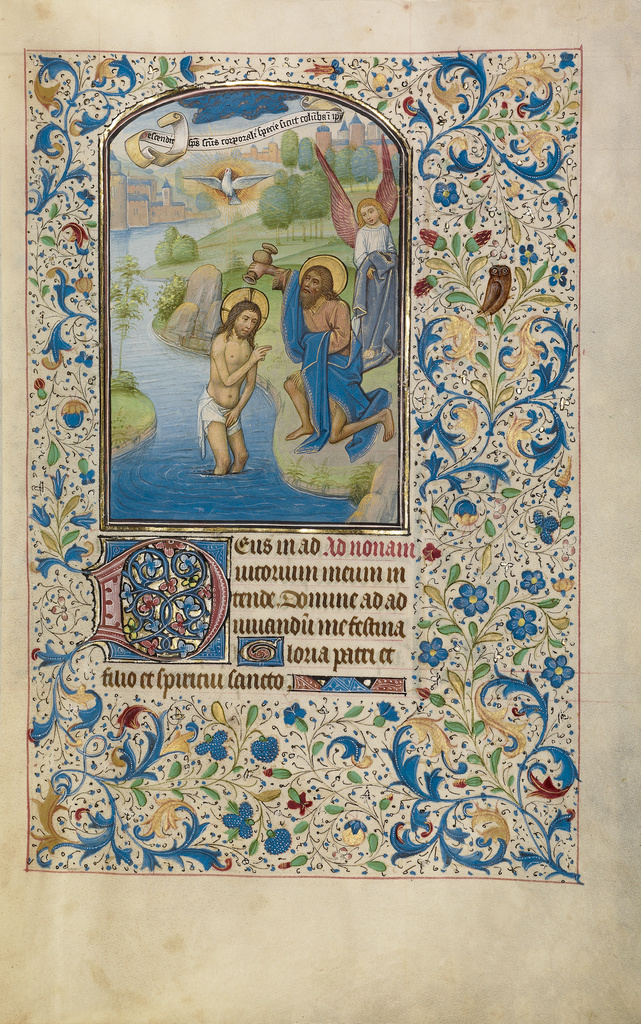 escendit sp̄s sc̄us corporali specie sicut colūba ī ip̄m
Deus in ad Ad nonam
iutorium meum in
tende. Domine ad ad
iuuandū me festina
Gloria patri et
filio et spiritui sancto